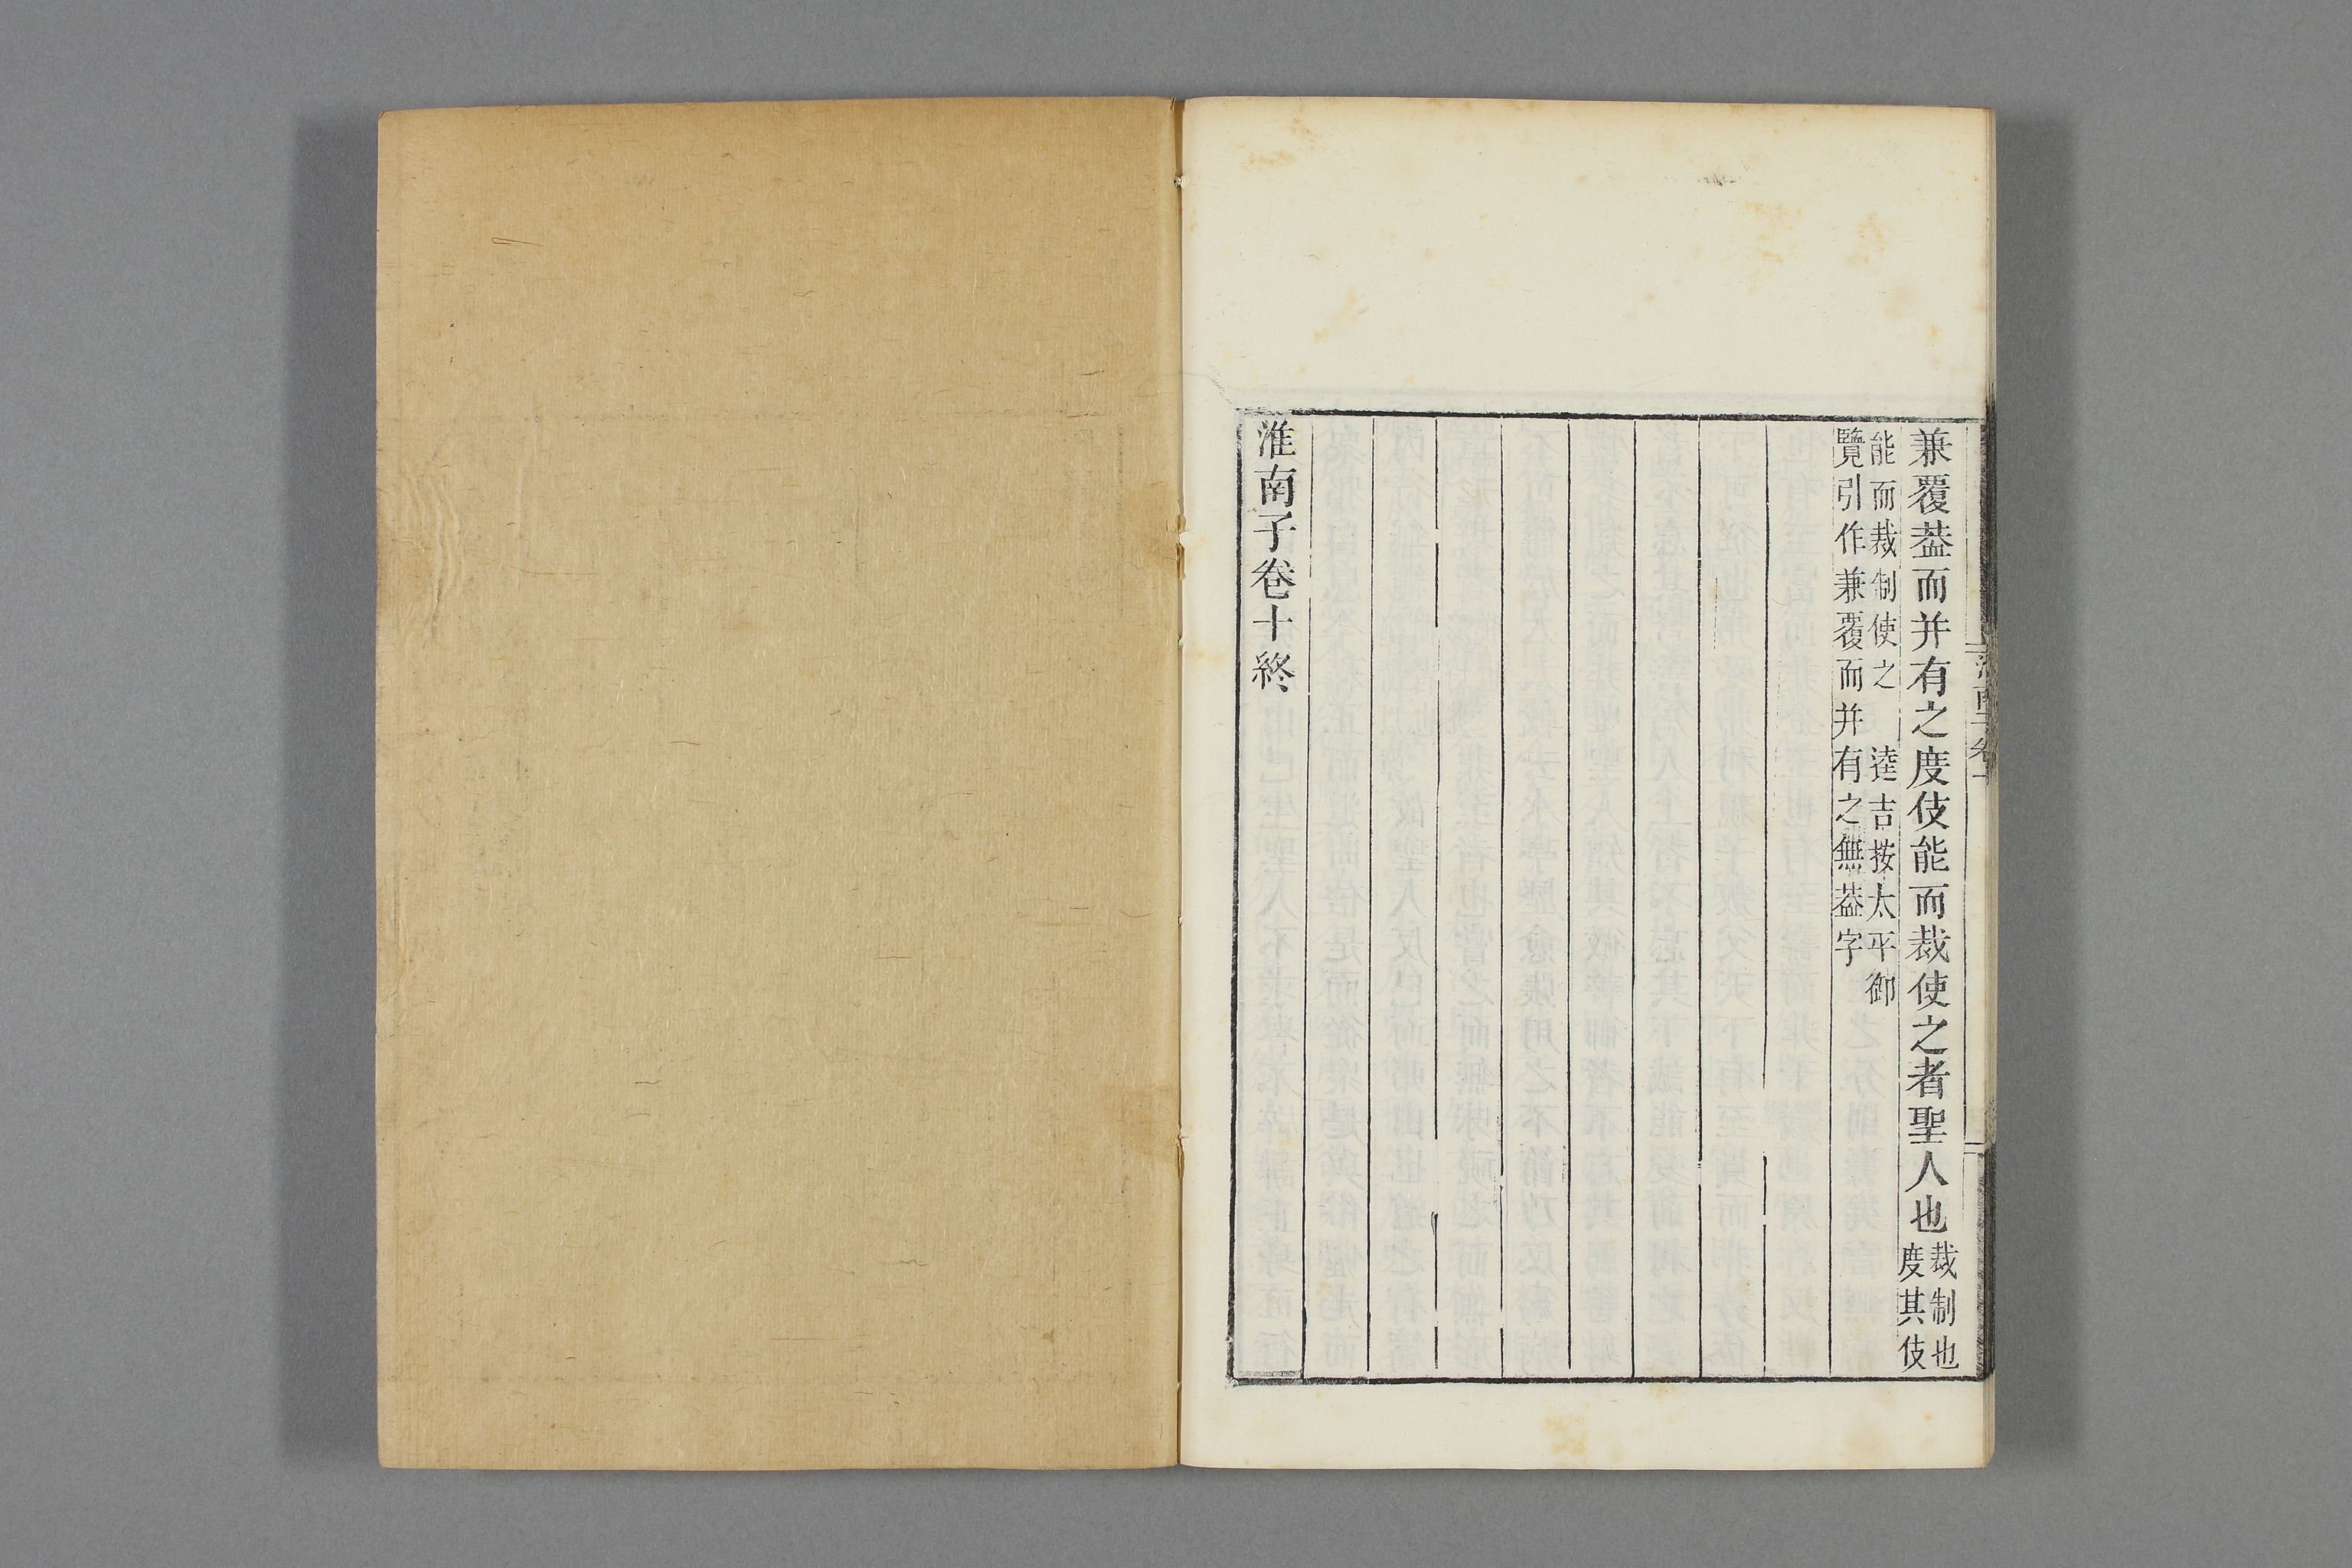 兼覆葢而并有之度伎能而裁使之者聖人也裁制也度其伎
能而裁制使之　逵吉按太平御
覽引作兼覆而并有之無葢字
淮南子卷十終